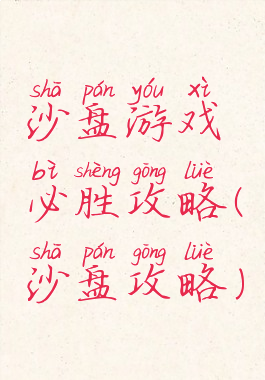 shā pán yóu xì
沙盘游戏
bì shèng gōng lüè
必胜攻略(
shā pán gōng lüè
沙盘攻略)